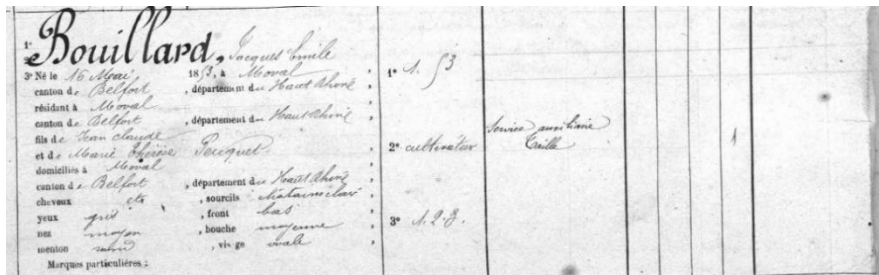 1° Bouillard, Jacques Emile
3° Né le 16 Mai 1853, à Moval
canton de Belfort, département du Haut Rhin
résidant à Moval
canton de Belfort, département du Haut Rhin
fils de Jean Claude
et de Marie Thérèse Pequet
domiciliés à Moval
canton de Belfort, département du Haut Rhin
cheveux etc, sourcils chatains clair
yeux gris, front bas
nez moyen, bouche moyenne
menton rond, visage ovale
Marques particulières :
1° 1. 53
2° cultivateur
3° 1. 2. 3.
Service auxiliaire
Taille
1